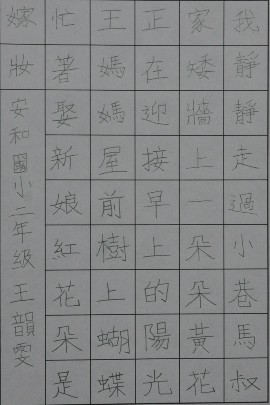 我靜靜走過小巷馬叔
家矮牆上一朵朵黃花
正在迎接早上的陽光
王媽媽屋前樹上蝴蝶
忙著娶新娘紅花朵是
嫁妝
安和國小二年級 王韻雯